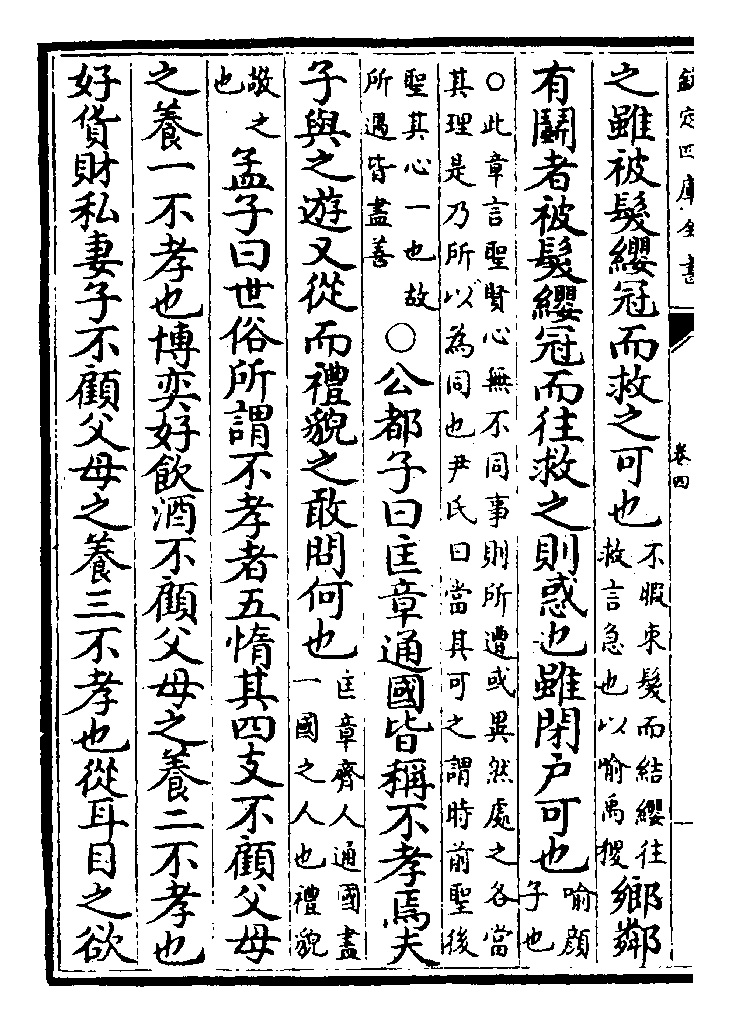 欽定四庫全書 卷四
之雖被髮纓冠而救之可也不暇束髮而結纓往救言急也以喻禹稷鄉鄰
有鬬者被髮纓冠而往救之則惑也雖閉户可也喻顔子也
○此章言聖賢心無不同事則所遭或異然處之各當
其理是乃所以為同也尹氏曰當其可之謂時前聖後
聖其心一也故所遇皆盡善○公都子曰匡章通國皆稱不孝焉夫
子與之遊又從而禮貌之敢問何也匡章齊人通國盡一國之人也禮貌
敬之也孟子曰世俗所謂不孝者五惰其四支不顧父母
之養一不孝也博奕好飲酒不顧父母之養二不孝也
好貨財私妻子不顧父母之養三不孝也從耳目之欲